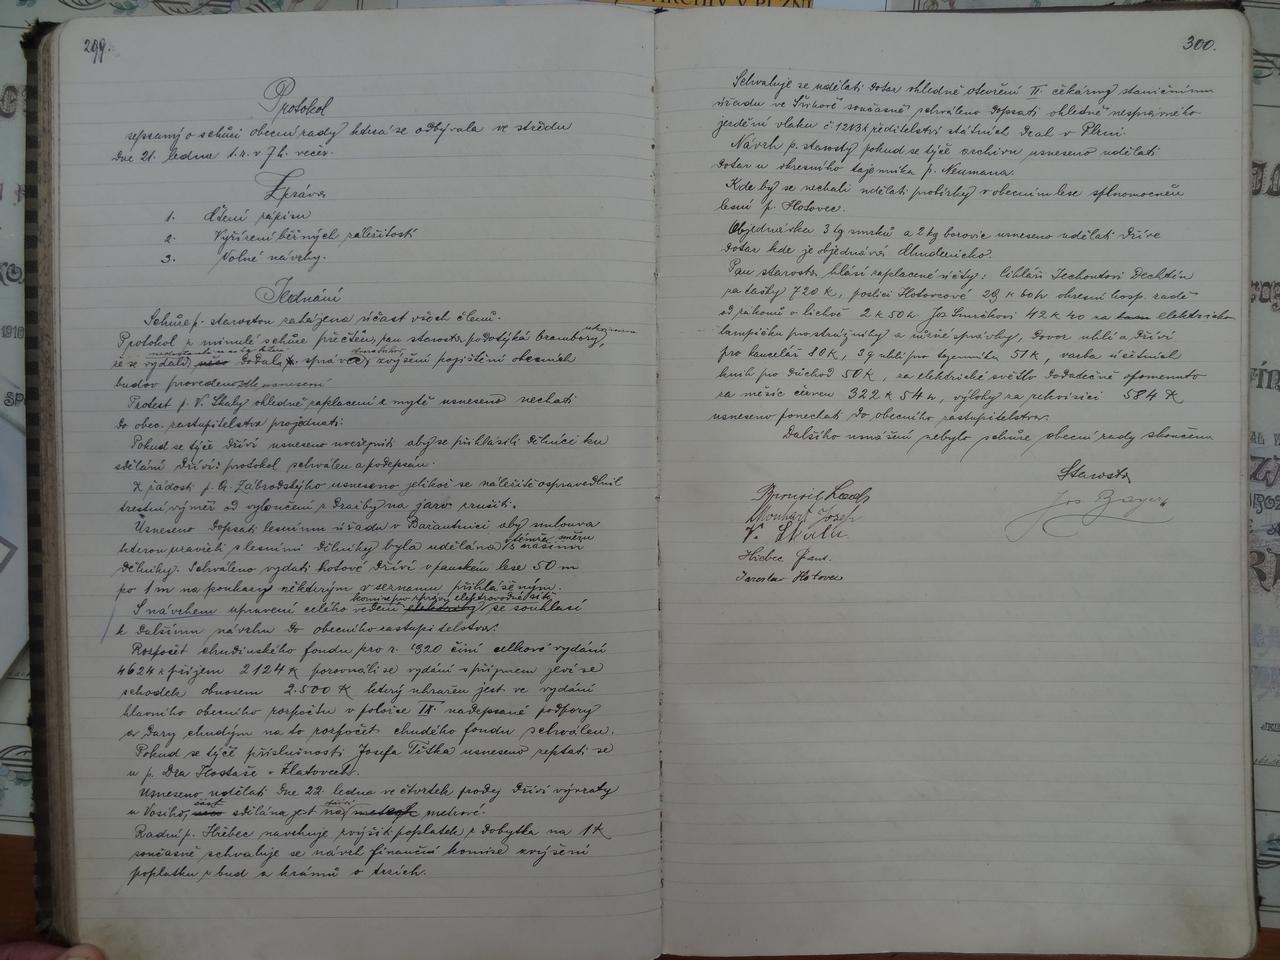 299.
Protokol
sepsaný o schůzi obecní rady která se odbývala ve středu
dne 21. ledna t.r. v 7 h. večer.
Zpráva
1. Čtení zápisu
2. Vyřízení běžných záležitostí
3. Volné návrhy.
Jednání
Schůze p. starostou zahájena účast všech členů.
Protokol z minulé schůze přečten, pan starosta podotýká brambory,
že se vydali dodal správce, zvýšení pojištění obecních
budov provedeno dle usnesení
Protest p. V. Skaly ohledně zaplacení z mýtě usneseno nechati
do obec. zastupitelstva projednati.
Pokud se týče dříví usneseno uveřejniti aby se přihlásili dělníci ku
sdělání dříví: protokol schválen a podepsán.
K žádosti p. A. Zábrodského usneseno jelikož se náležitě ospravedlnil
trestní výměr od vyloučení z dražby na jaro zrušiti.
Usneseno dopsati lesnímu úřadu v aby smlouva
kterou uzavřeli s lesními dělníky byla udělána v témže směru i s našimi
dělníky. Schváleno vydati hotové dříví v panském lese 50 m
po 1 m na poukazy některým v seznamu přihlášeným.
S návrhem upravení celého vedení se souhlasí
k dalšímu návrhu do obecního zastupitelstva.
Rozpočet chudinského fondu pro r. 1920 činí celkové vydání
4624 K příjem 2124 K porovnáli se vydání s příjmem jeví se
schodek obnosem 2.500 K který uhražen jest ve vydání
hlavního obecního rozpočtu v položce IX. nadepsané podpory
a dary chudým na to rozpočet chudého fondu schválen.
Pokud se týče příslušnosti Josefa Tíška usneseno zeptati se
u p. Dra Hostaše v Klatovech.
Usneseno udělati dne 22. ledna ve čtvrtek prodej dříví vývraty
u Vosího, část sdělána jest na metrové.
Radní p. Hřebec navrhuje zvýšit poplatek z dobytka na 1 K
současně schvaluje se návrh finanční komise zvýšení
poplatku z bud a krámů o trzích.
300.
Schvaluje se udělati dotaz ohledně otevření II. čekárny staničnímu
úřadu ve současně schváleno dopsati ohledně nesprávného
jezdění vlaku č. 1213 ředitelství státních drah v Plzni.
Návrh p. starosty pokud se týče archivu usneseno udělati
dotaz u okresního tajemníka p. Neumana.
Kde by se nechali udělati probírky v obecním lese splnomocněn
lesní p. Hotovec.
Objednávku 3 kg smrků a 2 kg borovic usneseno udělati dříve
dotaz kde je objednává Mundenicko.
Pan starosta hlásí zaplacené účty: Cihláři Dechtín
za tašky 720 K, poslici Hotovcové 29 K 60 h okresní hosp. radě
28 zákonů o lichvě 2 K 50 h. Jos 42 K 40 za elektrickou
lampičku prostružníky a různé správky, dovoz uhlí a dříví
pro kancelář 80 K, 3 q uhlí pro tajemníka 51 K, vazba účetních
knih pro důchod 50 K, za elektrické světlo dodatečně opomenuto
za měsíc červen 322 K 54 h, výlohy za rekvisici 584 K
usneseno ponechati do obecního zastupitelstva.
Dalšího usnášení nebylo schůze obecní rady skončena
Starosta
Jos Bayer
Monhart Josef
V. Skála
Hřebec Frant.
Jaroslav Hotovec